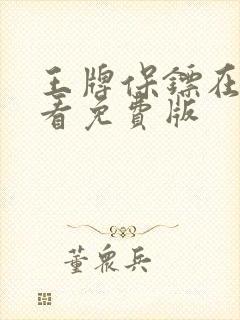 王牌保镖在
看免費版
董眾兵